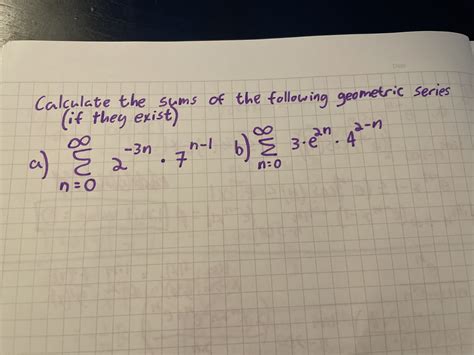 Calculate the sums of the following geometric series
(if they exist)
a) ∞ Σ n=0 2^-3n · 7^n-1 b) ∞ Σ n=0 3·e^2n · 4^2-n